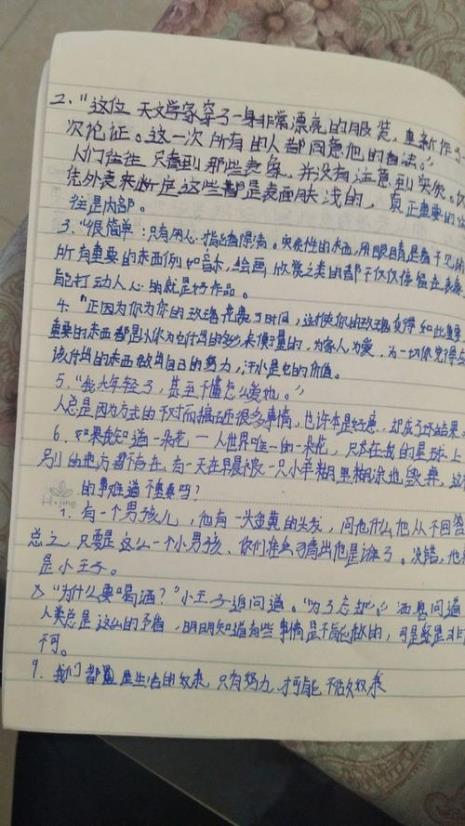 2. "这位天文学家穿了一身非常漂亮的服装,重新作了
次论证。这一次所有的人都同意他的看法。"
人们往往只看到那些表象,并没有注意到实质。仅
凭外表来断定这些都是表面肤浅的,真正重要的
往是内部。
3. "很简单:只有用心才能看得清。实质性的东西,用眼睛是看不见的
所有重要的东西例如音乐,绘画,欣赏之类的都不仅仅停留在表象
能打动人心的就是好作品。
4. "正因为你为你的玫瑰花费了时间,这才使你的玫瑰变得如此重要
重要的东西都是以你为它付出的多少来衡量的,为家人为爱,为一切你觉得
该付出的东西做出自己的努力,汗水是它的价值。
5. "我太年轻了,甚至不懂怎么爱她。"
人总是因为方式的不对而搞砸很多事情,也许本是好意,却成了坏结果
6. 如果我知道一朵花 一人世界唯一的一朵花,只在我的星球上
别的地方都不存在,有一天在早晨被一只小羊糊里糊涂地毁弃,这
的事难道不重要吗?
7. 有一个男孩儿,他有一头金黄的头发,问他什么他从不回答
总之,只要是这么一个小男孩,你们准会猜出他是谁了。没错,他
是小王子。
8 "为什么要喝酒?"小王子追问道。"为了忘却。"酒鬼回道
人类总是这么的矛盾,明明知道有些事情是不能做的,可是总是非
不可。
9. 我们都是生活的奴隶,只有努力,才可能不